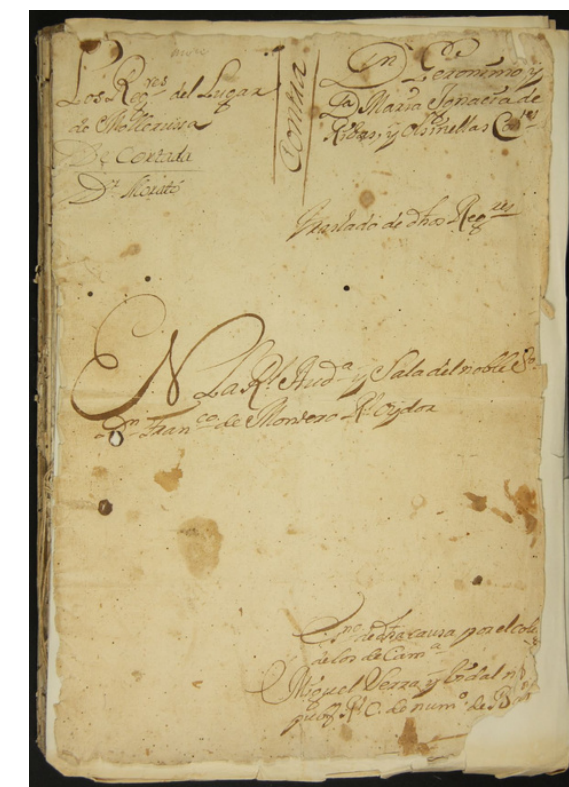 Los Reg.res del Lugar
de Mollerusa
Dr Cortada
Dr. Morató
Contra
Dn Geronimo y
Da Maria Ignacia de
Ribas, y Olzinellas Con.es
Traslado de dhos Reg.res
EN La Rl Auda y Sala del noble Sr.
Dn Franco de Montero Rl Oydor
de dha causa por el cole
de los de Cama
Miguel Serra y Vidal
de numo de Bar